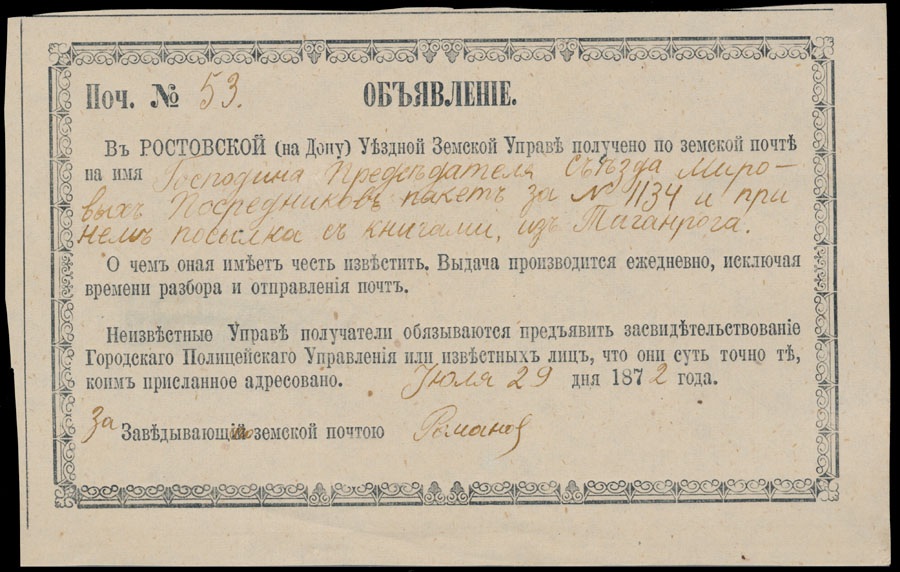 Поч. № 53. ОБЪЯВЛЕНІЕ.
Въ РОСТОВСКОЙ (на Дону) Уѣздной Земской Управѣ получено по земской почтѣ
на имя Господина Предсѣдателя Съѣзда Миро-
выхъ Посредниковъ пакетъ за № 1134 и при
немъ посылка съ книгами, изъ Таганрога.
О чемъ оная имѣетъ честь извѣстить. Выдача производится ежедневно, исключая
времени разбора и отправленія почтъ.
Неизвѣстные Управѣ получатели обязываются предъявить засвидѣтельствованіе
Городскаго Полицейскаго Управленія или извѣстныхъ лицъ, что они суть точно тѣ,
коимъ присланное адресовано. Іюля 29 дня 1872 года.
За Завѣдывающій земской почтою Романов